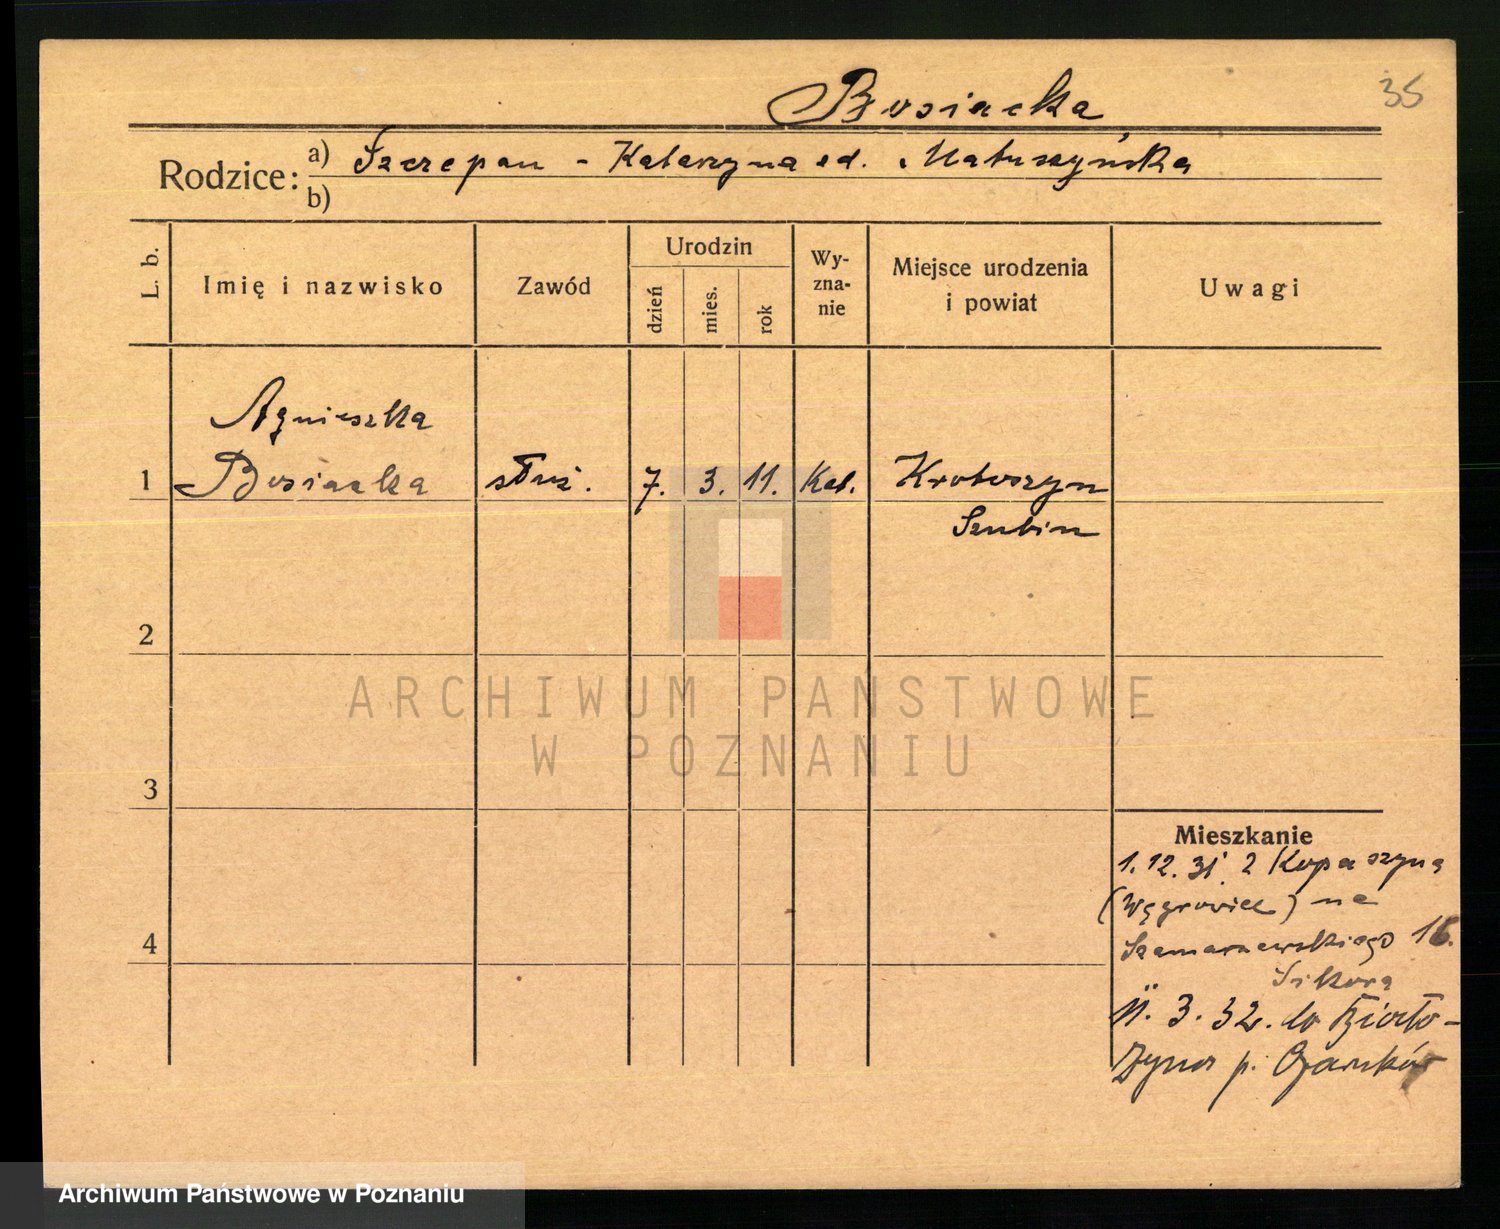 Bosiacka
35
Rodzice: a) Szczepan - Katarzyna zd. Matuszyńska
b)
L. b.
Imię i nazwisko
Zawód
Urodzin
dzień
mies.
rok
Wy-
zna-
nie
Miejsce urodzenia
i powiat
Uwagi
Agnieszka
1 Bosiacka służ. 7. 3. 11. Kat. Krotoszyn
Szubin
2
3
4
Mieszkanie
1.12.31. z Kopaszyna
(Wągrowiec) na
Szamarzewskiego 16.
Sikora
11. 3. 32. do
p. Czarnków
ARCHIWUM PAŃSTWOWE
W POZNANIU
Archiwum Państwowe w Poznaniu